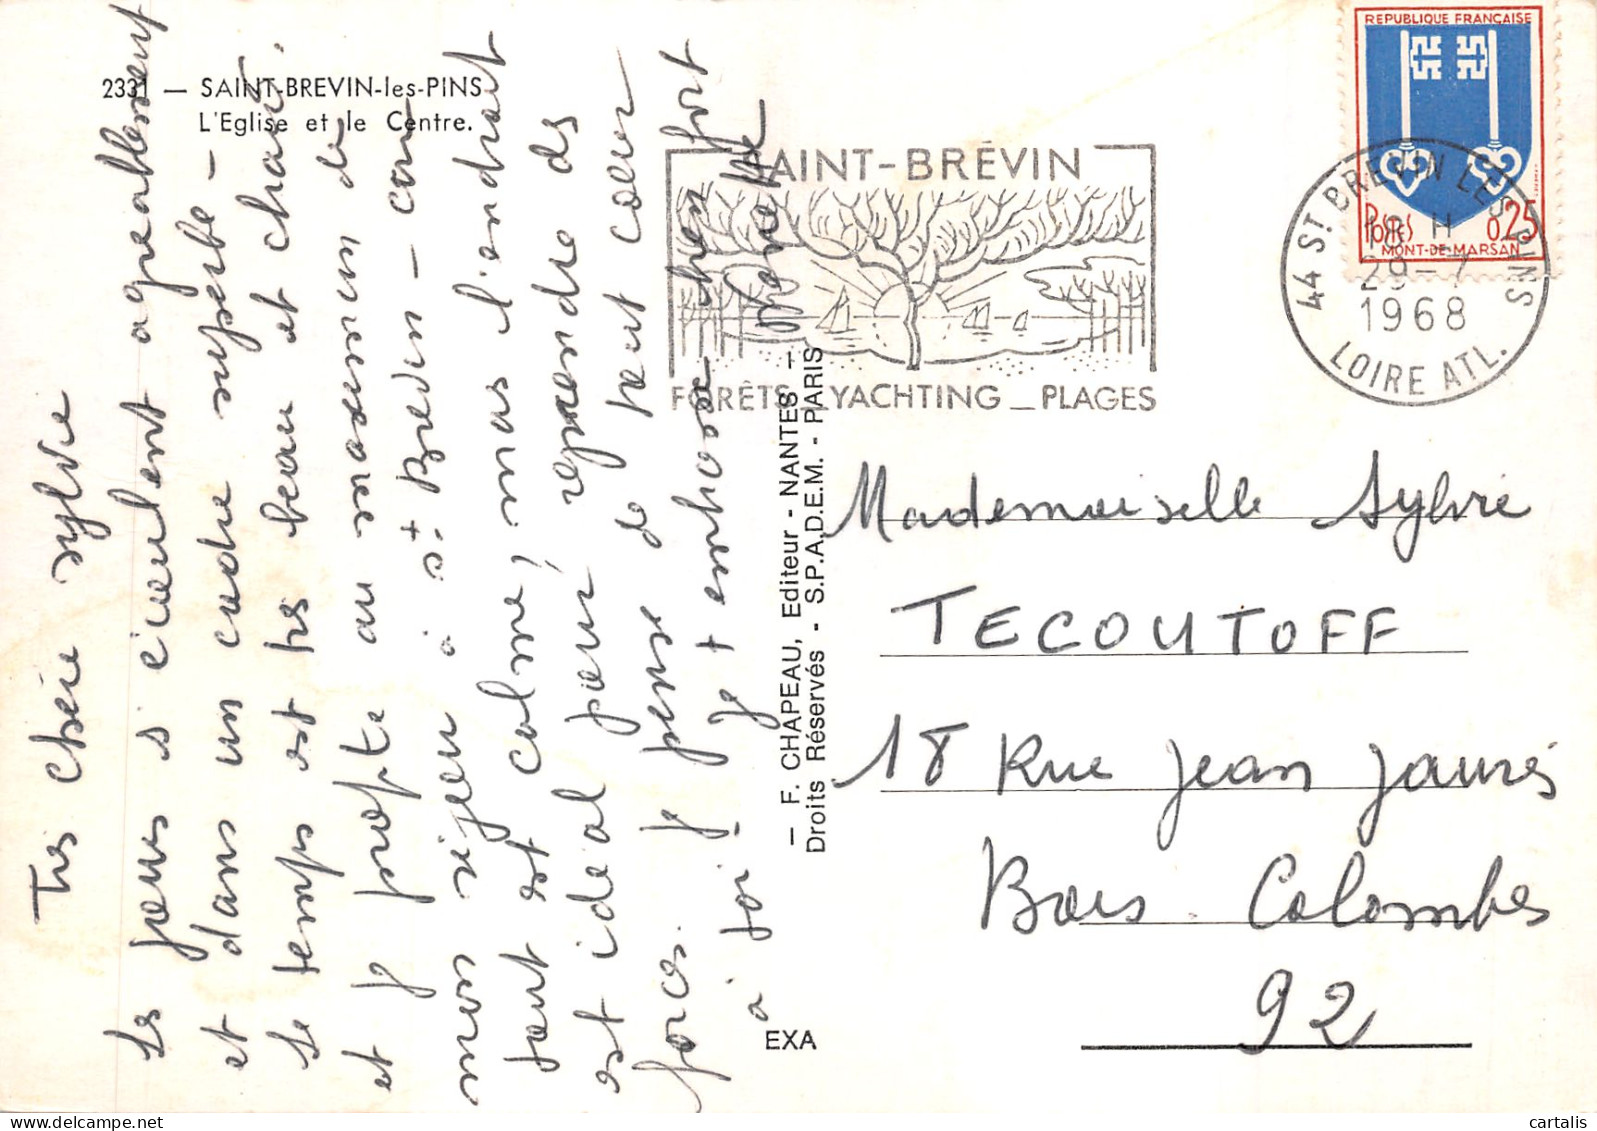 2331 — SAINT-BREVIN-les-PINS
L'Eglise et le Centre.
Très chère Sylvie
Les jours s'écoulent agréablement
et dans un cadre superbe -
Le temps est très beau et chaud.
et je profite au maximum de
mon séjour à St. Brévin - car
tout est calme, mais l'endroit
est idéal pour reprendre des
forces. Je pense de tout cœur
à toi. Je t'embrasse bien fort
— F. CHAPEAU, Editeur - NANTES —
Droits Réservés - S.P.A.D.E.M. - PARIS
EXA
SAINT-BRÉVIN
FORÊTS _ YACHTING _ PLAGES
REPUBLIQUE FRANÇAISE
POSTES 0,25
MONT-DE-MARSAN
44 ST BREVIN LES PINS
18 H
29 - 7
1968
LOIRE ATL.
Mademoiselle Sylvie
TECOUTOFF
18 Rue Jean Jaurés
Bois Colombes
92
cartalis